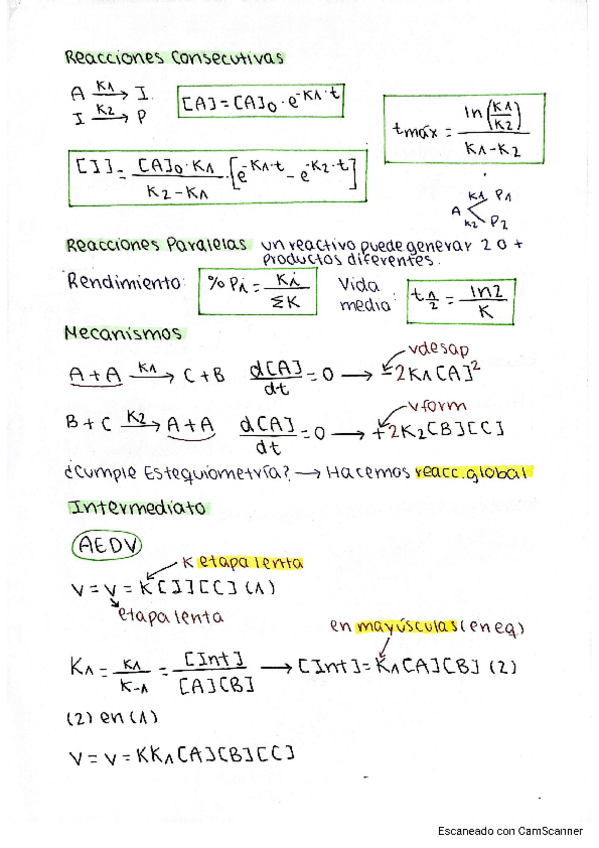 Reacciones Consecutivas
A —K1→ I
I —K2→ P
[A]=[A]0·e^-K1·t
tmáx = ln(K1/K2) / K1-K2
[I]= [A]0·K1 / K2-K1 · [e^-K1·t - e^-K2·t]
A K1 P1
K2 P2
Reacciones Paralelas un reactivo puede generar 2 o +
productos diferentes.
Rendimiento: %Pi = Ki / ΣK Vida media: t1/2 = ln2 / K
Mecanismos
vdesap
A+A —K1→ C+B d[A]/dt = 0 → -2K1[A]²
vform
B+C —K2→ A+A d[A]/dt = 0 → +2K2[B][C]
¿Cumple Estequiometría? → Hacemos reacc.global
Intermediato
AEDV
K etapa lenta
v = v = K[I][C] (1)
etapa lenta
en mayúsculas (en eq)
K1 = K1/K-1 = [Int]/[A][B] → [Int]=K1[A][B] (2)
(2) en (1)
v = v = KK1[A][B][C]
Escaneado con CamScanner